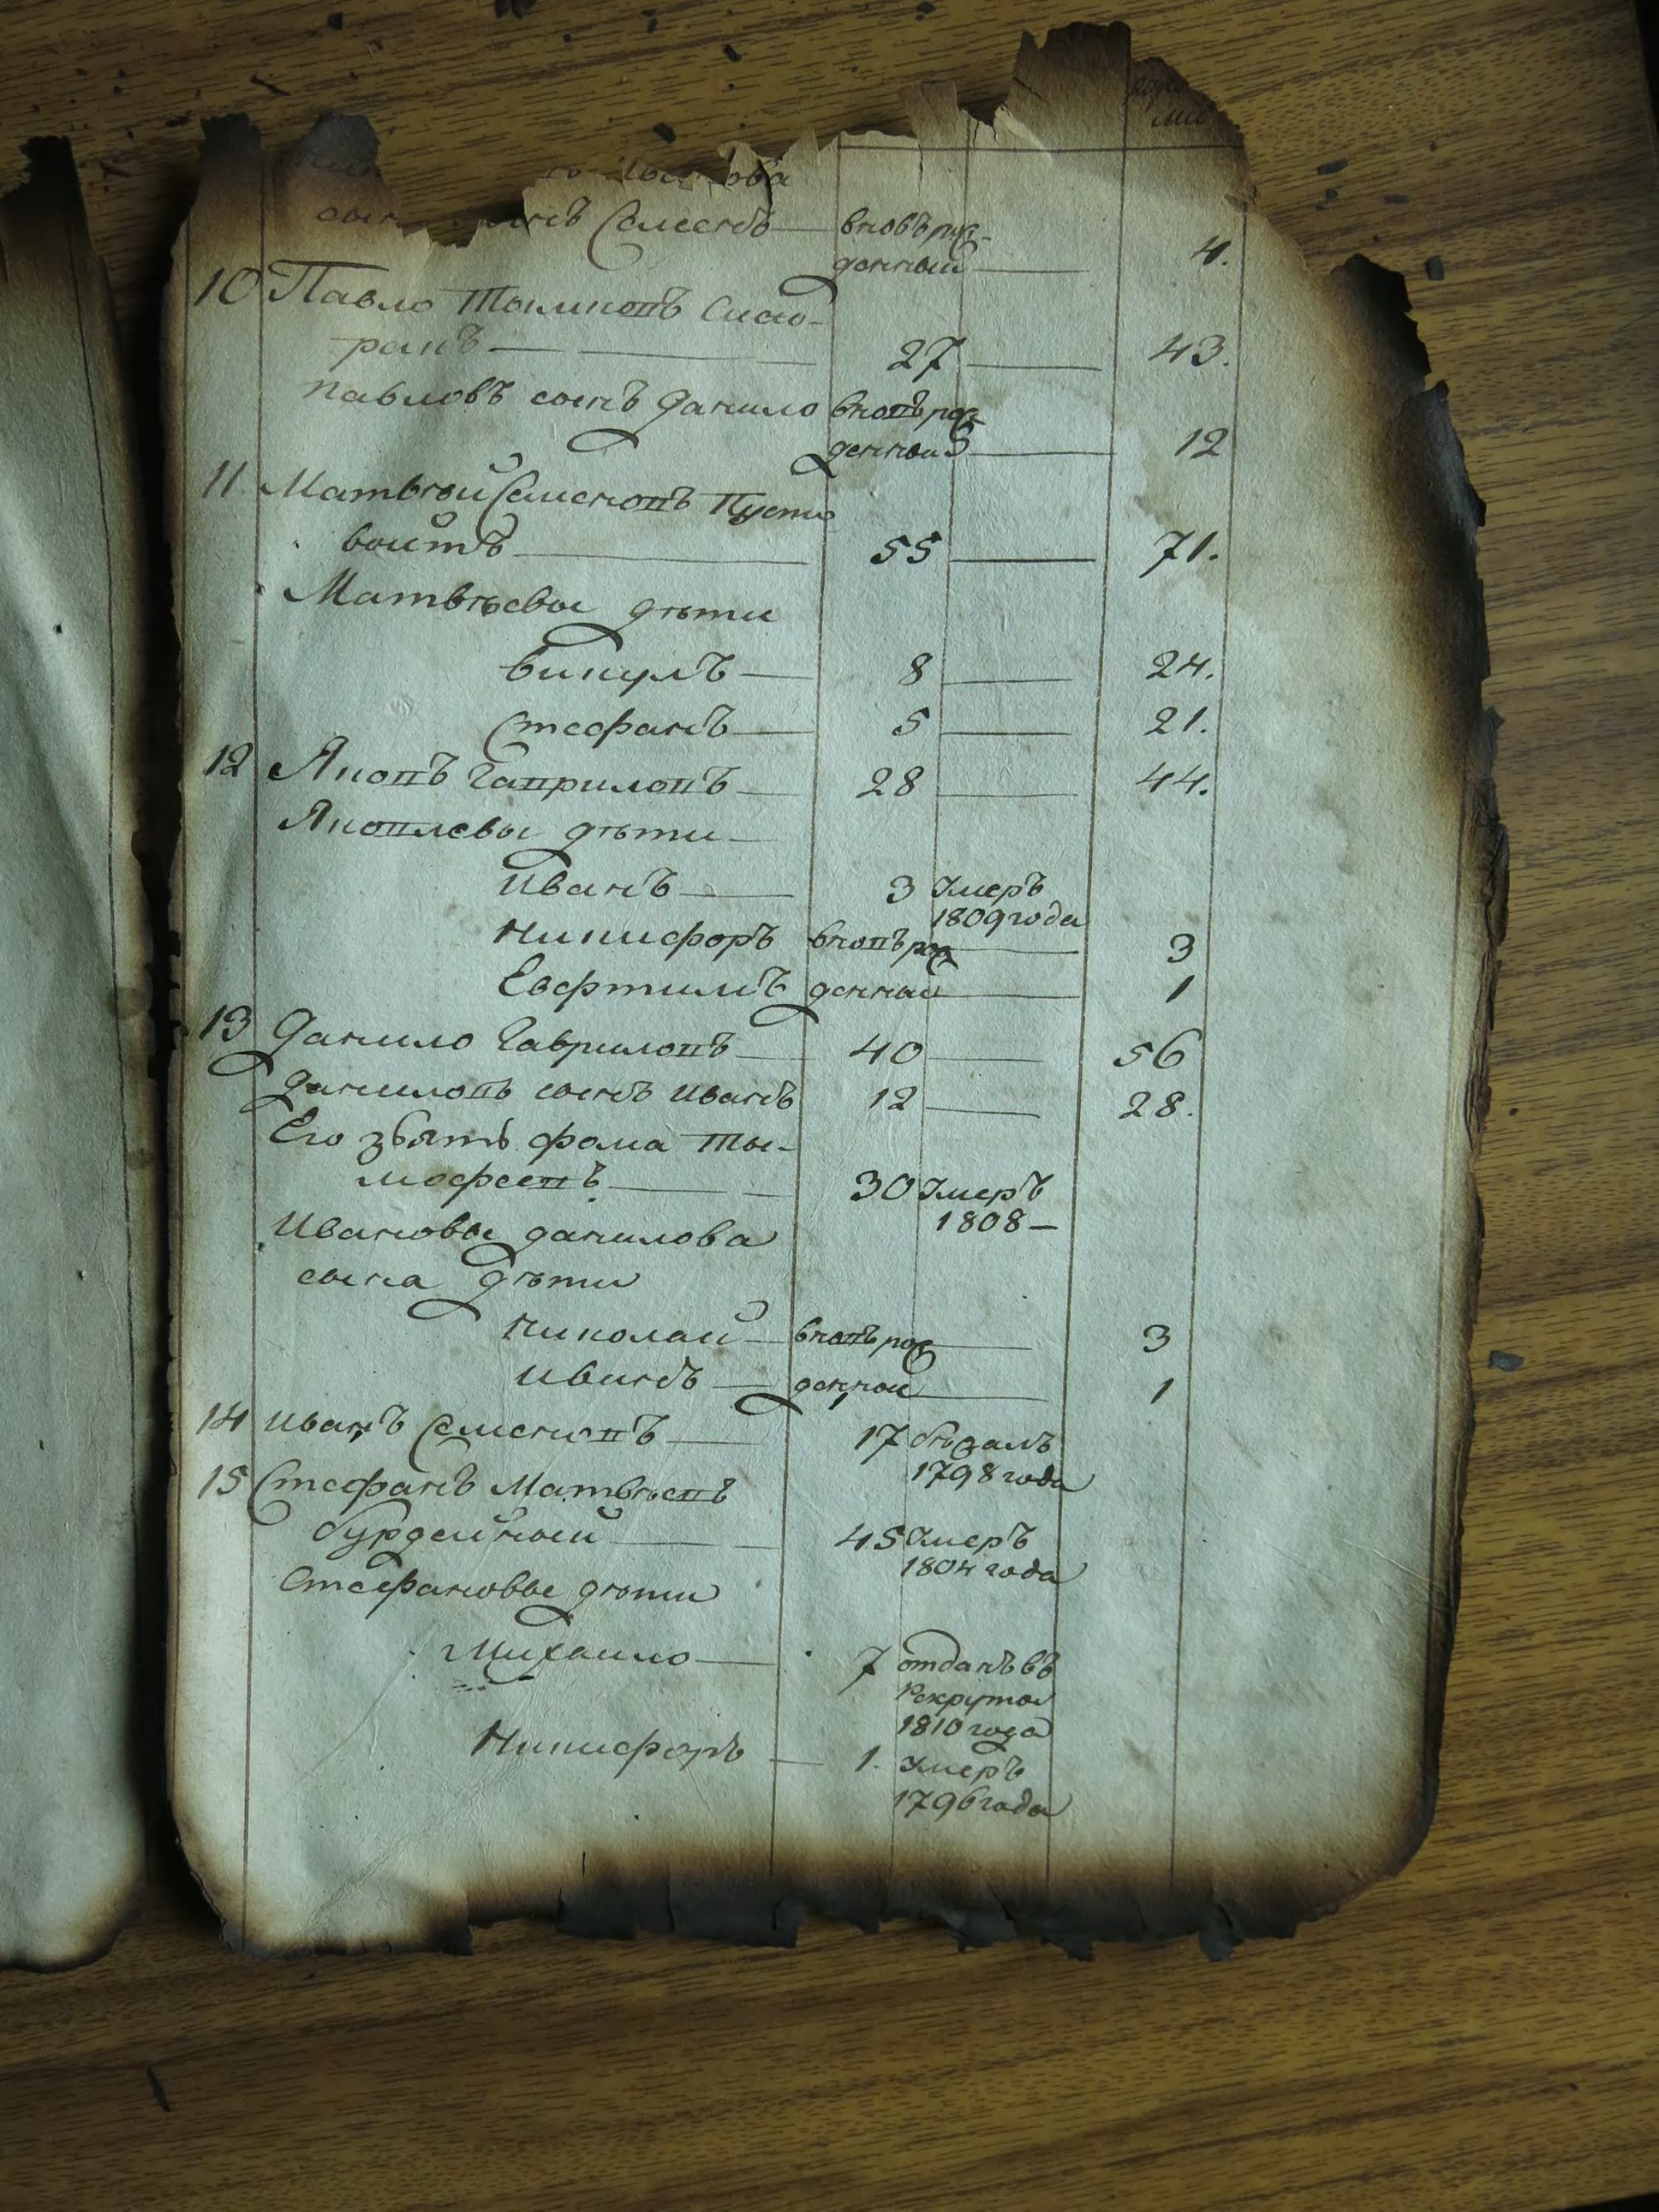 ова
Семенъ вновъ рож-
денный 4.
10 Павло Тымковъ Скло-
ранъ 27 43.
Павловъ сынъ Данило вновъ рож
денный 12
11. Матвѣй Семеновъ Пусто
войтъ 55 71.
Матвѣевы дѣти
Викулъ 8 24.
Стефанъ 5 21.
12 Яковъ Гавриловъ 28 44.
Яковлевы дѣти
Иванъ 3 Умеръ
1809 года
Никифоръ вновъ рож 3
Евфтимъ денный 1
13 Данило Гавриловъ 40 56
Даниловъ сынъ Иванъ 12 28.
Его зять фома Ты-
мофеевъ 30 Умеръ
1808
Ивановы данилова
сына дѣти
Николай вновъ рож 3
Иванъ денной 1
14 Иванъ Семеновъ 17 бѣжалъ
1798 года
15 Стефанъ Матвѣевъ
бурдейный 45 Умеръ
1804 года
Стефановы дѣти
Михайло 7 отданъ въ
Рекруты
1810 года
Никифоръ 1. Умеръ
1796 года